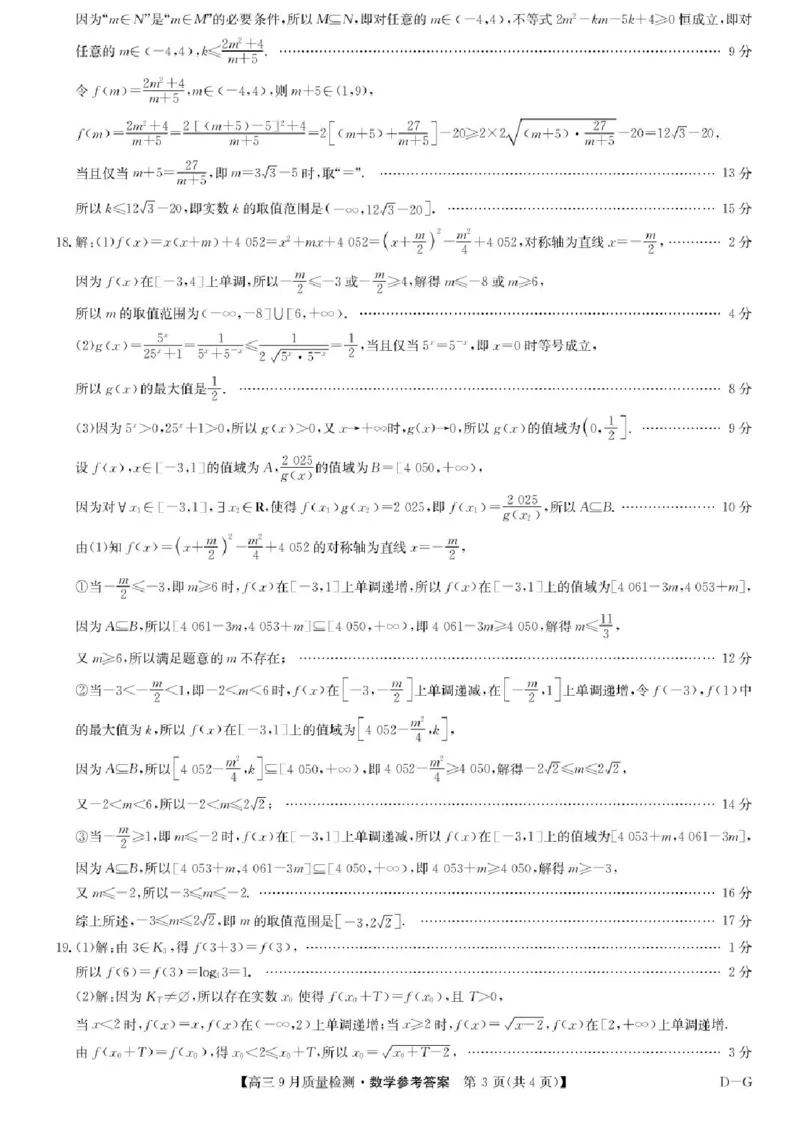 因为“m∈N”是“m∈M”的必要条件,所以M⊆N,即对任意的m∈(-4,4),不等式2m²-km-5k+4≥0恒成立,即对
任意的m∈(-4,4),k≤\frac{2m²+4}{m+5}. …… 9分
令f(m)=\frac{2m²+4}{m+5},m∈(-4,4),则m+5∈(1,9),
f(m)=\frac{2m²+4}{m+5}=\frac{2[(m+5)-5]²+4}{m+5}=2[(m+5)+\frac{27}{m+5}]-20≥2×2\sqrt{(m+5)·\frac{27}{m+5}}-20=12√3-20,
当且仅当m+5=\frac{27}{m+5},即m=3√3-5时,取“=”. …… 13分
所以k≤12√3-20,即实数k的取值范围是(-∞,12√3-20]. …… 15分
18.解:(1)f(x)=x(x+m)+4 052=x²+mx+4 052=(x+\frac{m}{2})²-\frac{m²}{4}+4 052,对称轴为直线x=-\frac{m}{2}, …… 2分
因为f(x)在[-3,4]上单调,所以-\frac{m}{2}≤-3或-\frac{m}{2}≥4,解得m≤-8或m≥6,
所以m的取值范围为(-∞,-8]∪[6,+∞). …… 4分
(2)g(x)=\frac{5^x}{25^x+1}=\frac{1}{5^x+5^{-x}}≤\frac{1}{2\sqrt{5^x·5^{-x}}}=\frac{1}{2},当且仅当5^x=5^{-x},即x=0时等号成立,
所以g(x)的最大值是\frac{1}{2}. …… 8分
(3)因为5^x>0,25^x+1>0,所以g(x)>0,又x→+∞时,g(x)→0,所以g(x)的值域为(0,\frac{1}{2}]. …… 9分
设f(x),x∈[-3,1]的值域为A,\frac{2 025}{g(x)}的值域为B=[4 050,+∞),
因为对∀x₁∈[-3,1],∃x₂∈R,使得f(x₁)g(x₂)=2 025,即f(x₁)=\frac{2 025}{g(x₂)},所以A⊆B. …… 10分
由(1)知f(x)=(x+\frac{m}{2})²-\frac{m²}{4}+4 052的对称轴为直线x=-\frac{m}{2},
①当-\frac{m}{2}≤-3,即m≥6时,f(x)在[-3,1]上单调递增,所以f(x)在[-3,1]上的值域为[4 061-3m,4 053+m],
因为A⊆B,所以[4 061-3m,4 053+m]⊆[4 050,+∞),即4 061-3m≥4 050,解得m≤\frac{11}{3},
又m≥6,所以满足题意的m不存在; …… 12分
②当-3<-\frac{m}{2}<1,即-2<m<6时,f(x)在[-3,-\frac{m}{2}]上单调递减,在[-\frac{m}{2},1]上单调递增,令f(-3),f(1)中
的最大值为k,所以f(x)在[-3,1]上的值域为[4 052-\frac{m²}{4},k],
因为A⊆B,所以[4 052-\frac{m²}{4},k]⊆[4 050,+∞),即4 052-\frac{m²}{4}≥4 050,解得-2√2≤m≤2√2,
又-2<m<6,所以-2<m≤2√2; …… 14分
③当-\frac{m}{2}≥1,即m≤-2时,f(x)在[-3,1]上单调递减,所以f(x)在[-3,1]上的值域为[4 053+m,4 061-3m],
因为A⊆B,所以[4 053+m,4 061-3m]⊆[4 050,+∞),即4 053+m≥4 050,解得m≥-3,
又m≤-2,所以-3≤m≤-2. …… 16分
综上所述,-3≤m≤2√2,即m的取值范围是[-3,2√2]. …… 17分
19.(1)解:由3∈K₃,得f(3+3)=f(3), …… 1分
所以f(6)=f(3)=log₃3=1. …… 2分
(2)解:因为K_T≠∅,所以存在实数x₀使得f(x₀+T)=f(x₀),且T>0,
当x<2时,f(x)=x,f(x)在(-∞,2)上单调递增;当x≥2时,f(x)=\sqrt{x-2},f(x)在[2,+∞)上单调递增.
由f(x₀+T)=f(x₀),得x₀<2≤x₀+T,所以x₀=\sqrt{x₀+T-2}, …… 3分
【高三9月质量检测·数学参考答案 第3页(共4页)】 D-G